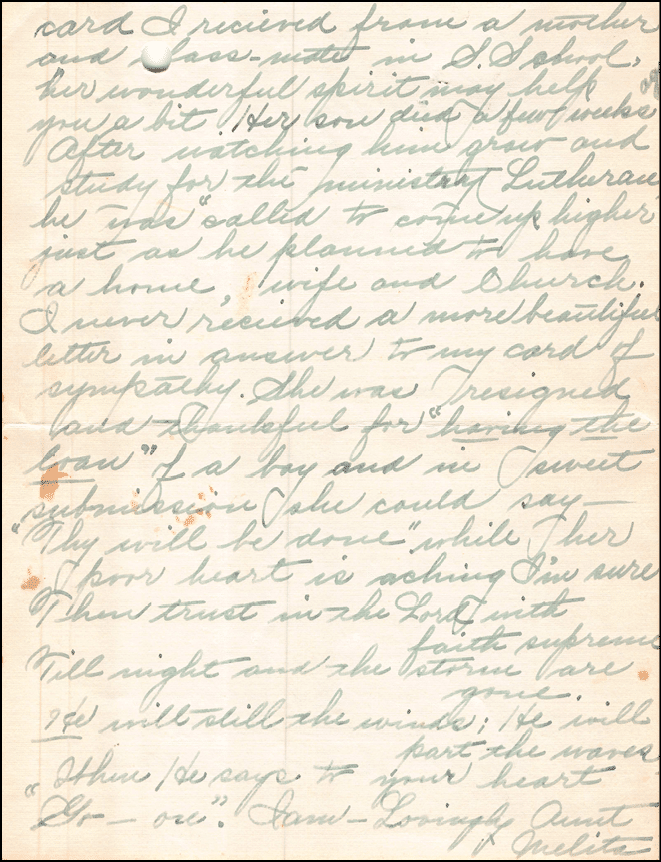 card I recieved from a mother
and class-mate in S. School,
her wonderful spirit may help
you a bit Her son died a few weeks
After watching him grow and
study for the ministry Lutheran
he was "called to come up higher
just as he planned to have
a home, wife and Church.
I never recieved a more beautiful
letter in answer to my card of
sympathy. She was resigned
and thankful for "having the
loan" of a boy and in sweet
submission she could say—
"Thy will be done" while her
poor heart is aching I'm sure
Then trust in the Lord with
faith supreme
Till night and the storm are
gone.
He will still the winds; He will
part the waves
When He says to your heart
"Go — on". I am — Lovingly Aunt
Melita